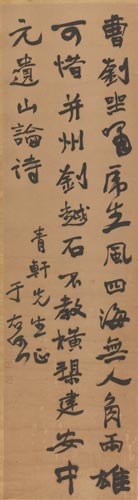 曹劉坐嘯虎生風四海無人角兩雄
可惜并州劉越石不教橫槊建安中
元遺山論詩
青軒先生正
于右任